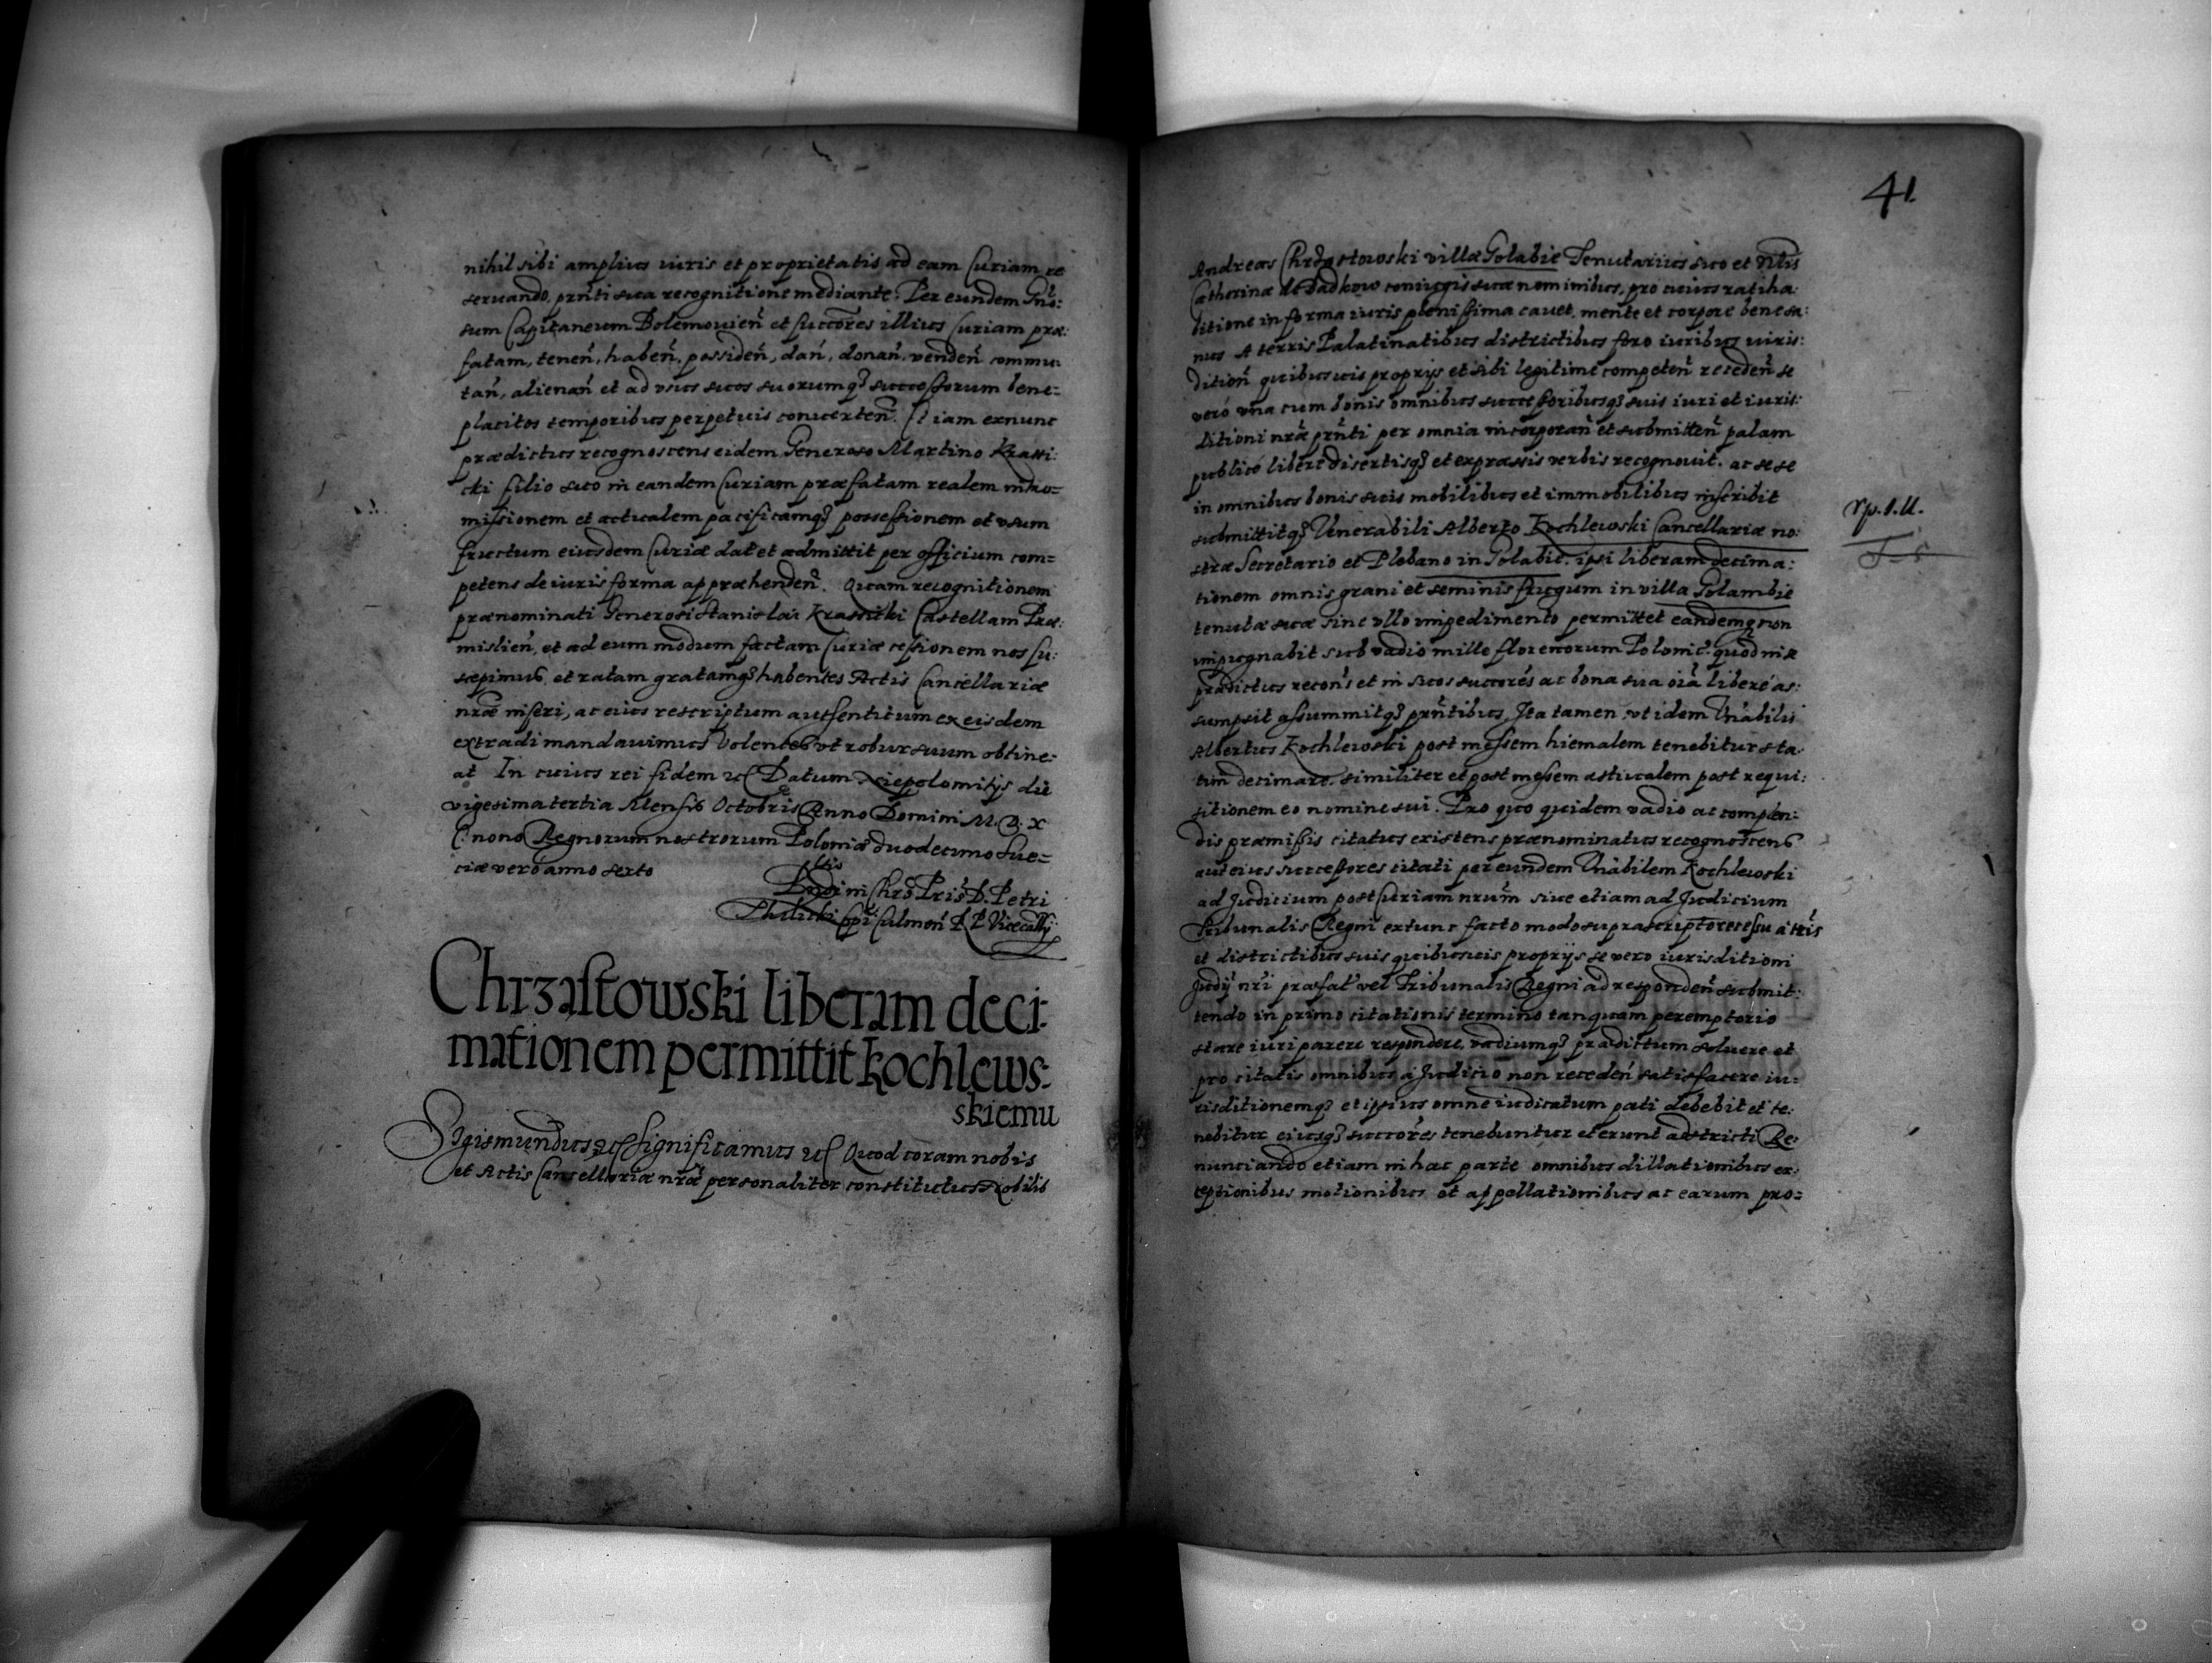 nihil sibi amplius iuris et proprietatis ad eam Curiam re
seruando, prñti sua recognitione mediante. Per eundem Gño:
sum Capitaneum Bolemouieñ et succores illius Curiam præ:
fatam, teneñ, habeñ, possideñ, dañ, donañ, vendeñ commu:
tañ, alienañ et ad vsus suos suorumq3 successorum bene=
placitos temporibus perpetuis conuerteñ. Et iam exnunc
prædictus recognoscens eidem Generoso Martino Krassi:
cki filio suo in eandem Curiam præfatam realem intro=
missionem et actualem pacificamq3 possessionem et vsum
fructum eiusdem Curiæ dat et admittit per officium com=
petens de iuris forma appræhendeñ. Quam recognitionem
prænominati Generosi Stanislai Krassicki Castellani Præ:
mislieñ, et ad eum modum factam Curiæ cessionem nos su:
scepimus, et ratam gratamq3 habentes Actis Cancellariæ
nræ inseri, ac eius rescriptum autfenticum ex eisdem
extradi mandauimus Volentes vt robur suum obtine:
at. In cuius rei fidem etc Datum Niepolomitijs die
vigesima tertia Mensis Octobris Anno Domini M. D. X
C. nono Regnorum nostrorum Poloniæ duodecimo Sue=
ciæ vero anno sexto
Rndi in Chro Pris D. Petri
Thilicki Epi Culmeñ R P Vicecallij
Chrzastowski liberam deci:
mationem permittit Kochlews:
skiemu
Sigismundus etc Significamus etc Quod coram nobis
et Actis Cancellariæ nræ personaliter constitutus Nobilis
41
Andreas Chrzastowski villæ Golabie Tenutarius suo et Nlis
Catherinæ de Sadkow coniugis suæ nominibus, pro cuius ratiha:
bitione in forma iuris plenissima cauet, mente et corpore bene sa:
nus A terris Palatinatibus districtibus foro iuribus iuris:
ditioñ quibusuis proprijs et sibi legitime competeñ recedeñ se
vero vna cum bonis omnibus successoribusq3 suis iuri et iuris:
ditioni nræ prñti per omnia incorporañ et submitteñ palam
publicè liberè disertisq3 et expræssis verbis recognouit. ac sese
in omnibus bonis suis mobilibus et immobilibus inscribit
submittitq3 Venerabili Alberto Kochlewski Cancellariæ no:
stræ Secretario et Plebano in Golabie. ipsi liberam decima:
tionem omnis grani et seminis frugum in villa Golambie
tenutæ suæ sine vllo impedimento permittet eandemq non
impugnabit sub vadio mille florenorum Polonic. quod in se
prædictus recoñs et in suos succores ac bona sua oia liberè as:
sumpsit assummitq3 prñtibus, Ita tamen, vt idem Vnabilis
Albertus Kochlewski post messem hiemalem tenebitur sta:
tim decimare. similiter et post messem æstiualem post requi:
sitionem eo nomine sui. Pro quo quidem vadio ac complen:
dis præmissis citatus existens prænominatus recognoscens
aut eius successores citati per eundem Vnabilem Kochlewski
ad Judicium post Curiam nrum siue etiam ad Judicium
Tribunalis Regni extunc facto modo suprascripto recessu a tris
et districtibus suis quibusuis proprijs se vero iurisditioni
Judij nri præfat vel Tribunalis Regni ad respondeñ submit:
tendo in primo citationis termino tanquam peremptorio
stare iuri parere respondere, vadiumq3 prædictum soluere et
pro citatis omnibus a Judicio non recedeñ satisfacere iu:
risditionemq3 et ipsius omne iudicatum pati debebit et te:
nebitur eiusq3 succores tenebuntur et erunt adstricti Re:
nunciando etiam in hac parte omnibus dillationibus ex:
ceptionibus motionibus et appellationibus ac earum pro=